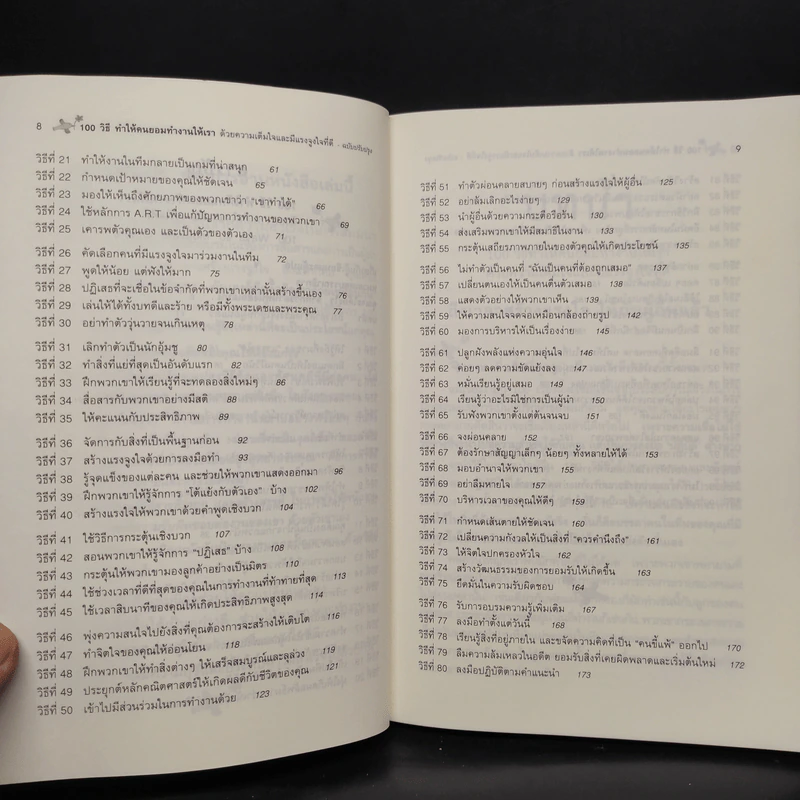 8 100 วิธี ทำให้คนยอมทำงานให้เรา ด้วยความเต็มใจและมีแรงจูงใจที่ดี - ฉบับปรับปรุง
วิธีที่ 21 ทำให้งานในทีมกลายเป็นเกมที่น่าสนุก 61
วิธีที่ 22 กำหนดเป้าหมายของคุณให้ชัดเจน 65
วิธีที่ 23 มองให้เห็นถึงศักยภาพของพวกเขาว่า "เขาทำได้" 66
วิธีที่ 24 ใช้หลักการ A.R.T. เพื่อแก้ปัญหาการทำงานของพวกเขา 69
วิธีที่ 25 เคารพตัวคุณเอง และเป็นตัวของตัวเอง 71
วิธีที่ 26 คัดเลือกคนที่มีแรงจูงใจมาร่วมงานในทีม 72
วิธีที่ 27 พูดให้น้อย แต่ฟังให้มาก 75
วิธีที่ 28 ปฏิเสธที่จะเชื่อในข้อจำกัดที่พวกเขาเหล่านั้นสร้างขึ้นเอง 76
วิธีที่ 29 เล่นให้ได้ทั้งบทดีและร้าย หรือมีทั้งพระเดชและพระคุณ 77
วิธีที่ 30 อย่าทำตัววุ่นวายจนเกินเหตุ 78
วิธีที่ 31 เลิกทำตัวเป็นนักอุ้มชู 80
วิธีที่ 32 ทำสิ่งที่แย่ที่สุดเป็นอันดับแรก 82
วิธีที่ 33 ฝึกพวกเขาให้เรียนรู้ที่จะทดลองสิ่งใหม่ๆ 86
วิธีที่ 34 สื่อสารกับพวกเขาอย่างมีสติ 88
วิธีที่ 35 ให้คะแนนกับประสิทธิภาพ 89
วิธีที่ 36 จัดการกับสิ่งที่เป็นพื้นฐานก่อน 92
วิธีที่ 37 สร้างแรงจูงใจด้วยการลงมือทำ 93
วิธีที่ 38 รู้จุดแข็งของแต่ละคน และช่วยให้พวกเขาแสดงออกมา 96
วิธีที่ 39 ฝึกพวกเขาให้รู้จักการ "โต้แย้งกับตัวเอง" บ้าง 102
วิธีที่ 40 สร้างแรงใจให้พวกเขาด้วยคำพูดเชิงบวก 104
วิธีที่ 41 ใช้วิธีการกระตุ้นเชิงบวก 107
วิธีที่ 42 สอนพวกเขาให้รู้จักการ "ปฏิเสธ" บ้าง 108
วิธีที่ 43 กระตุ้นให้พวกเขามองลูกค้าอย่างเป็นมิตร 110
วิธีที่ 44 ใช้ช่วงเวลาที่ดีที่สุดของคุณในการทำงานที่ท้าทายที่สุด 113
วิธีที่ 45 ใช้เวลาสิบนาทีของคุณให้เกิดประสิทธิภาพสูงสุด 114
วิธีที่ 46 พุ่งความสนใจไปยังสิ่งที่คุณต้องการจะสร้างให้เติบโต 116
วิธีที่ 47 ทำจิตใจของคุณให้อ่อนโยน 118
วิธีที่ 48 ฝึกพวกเขาให้ทำสิ่งต่างๆ ให้เสร็จสมบูรณ์และลุล่วง 119
วิธีที่ 49 ประยุกต์หลักคณิตศาสตร์ให้เกิดผลดีกับชีวิตของคุณ 121
วิธีที่ 50 เข้าไปมีส่วนร่วมในการทำงานด้วย 123
9
วิธีที่ 51 ทำตัวผ่อนคลายสบายๆ ก่อนสร้างแรงใจให้ผู้อื่น 125
วิธีที่ 52 อย่าล้มเลิกอะไรง่ายๆ 129
วิธีที่ 53 นำผู้อื่นด้วยความกระตือรือร้น 130
วิธีที่ 54 ส่งเสริมพวกเขาให้มีสมาธิในงาน 133
วิธีที่ 55 กระตุ้นเสถียรภาพภายในของตัวคุณให้เกิดประโยชน์ 135
วิธีที่ 56 ไม่ทำตัวเป็นคนที่ "ฉันเป็นคนที่ต้องถูกเสมอ" 137
วิธีที่ 57 เปลี่ยนตนเองให้เป็นคนตื่นตัวเสมอ 138
วิธีที่ 58 แสดงตัวอย่างให้พวกเขาเห็น 139
วิธีที่ 59 ให้ความสนใจจดจ่อเหมือนกล้องถ่ายรูป 142
วิธีที่ 60 มองการบริหารให้เป็นเรื่องง่าย 145
วิธีที่ 61 ปลูกฝังพลังแห่งความอุ่นใจ 146
วิธีที่ 62 ค่อยๆ ลดความขัดแย้งลง 147
วิธีที่ 63 หมั่นเรียนรู้อยู่เสมอ 149
วิธีที่ 64 เรียนรู้ว่าอะไรมิใช่การเป็นผู้นำ 150
วิธีที่ 65 รับฟังพวกเขาตั้งแต่ต้นจนจบ 151
วิธีที่ 66 จงผ่อนคลาย 152
วิธีที่ 67 ต้องรักษาสัญญาเล็กๆ น้อยๆ ทั้งหลายให้ได้ 153
วิธีที่ 68 มอบอำนาจให้พวกเขา 155
วิธีที่ 69 อย่าลืมหายใจ 157
วิธีที่ 70 บริหารเวลาของคุณให้ดีๆ 159
วิธีที่ 71 กำหนดเส้นตายให้ชัดเจน 160
วิธีที่ 72 เปลี่ยนความกังวลให้เป็นสิ่งที่ "ควรคำนึงถึง" 161
วิธีที่ 73 ให้จิตใจปกครองหัวใจ 162
วิธีที่ 74 สร้างวัฒนธรรมของการยอมรับให้เกิดขึ้น 163
วิธีที่ 75 ยึดมั่นในความรับผิดชอบ 164
วิธีที่ 76 รับการอบรมความรู้เพิ่มเติม 167
วิธีที่ 77 ลงมือทำตั้งแต่วันนี้ 168
วิธีที่ 78 เรียนรู้สิ่งที่อยู่ภายใน และขจัดความคิดที่เป็น "คนขี้แพ้" ออกไป 170
วิธีที่ 79 ลืมความล้มเหลวในอดีต ยอมรับสิ่งที่เคยผิดพลาดและเริ่มต้นใหม่ 172
วิธีที่ 80 ลงมือปฏิบัติตามคำแนะนำ 173